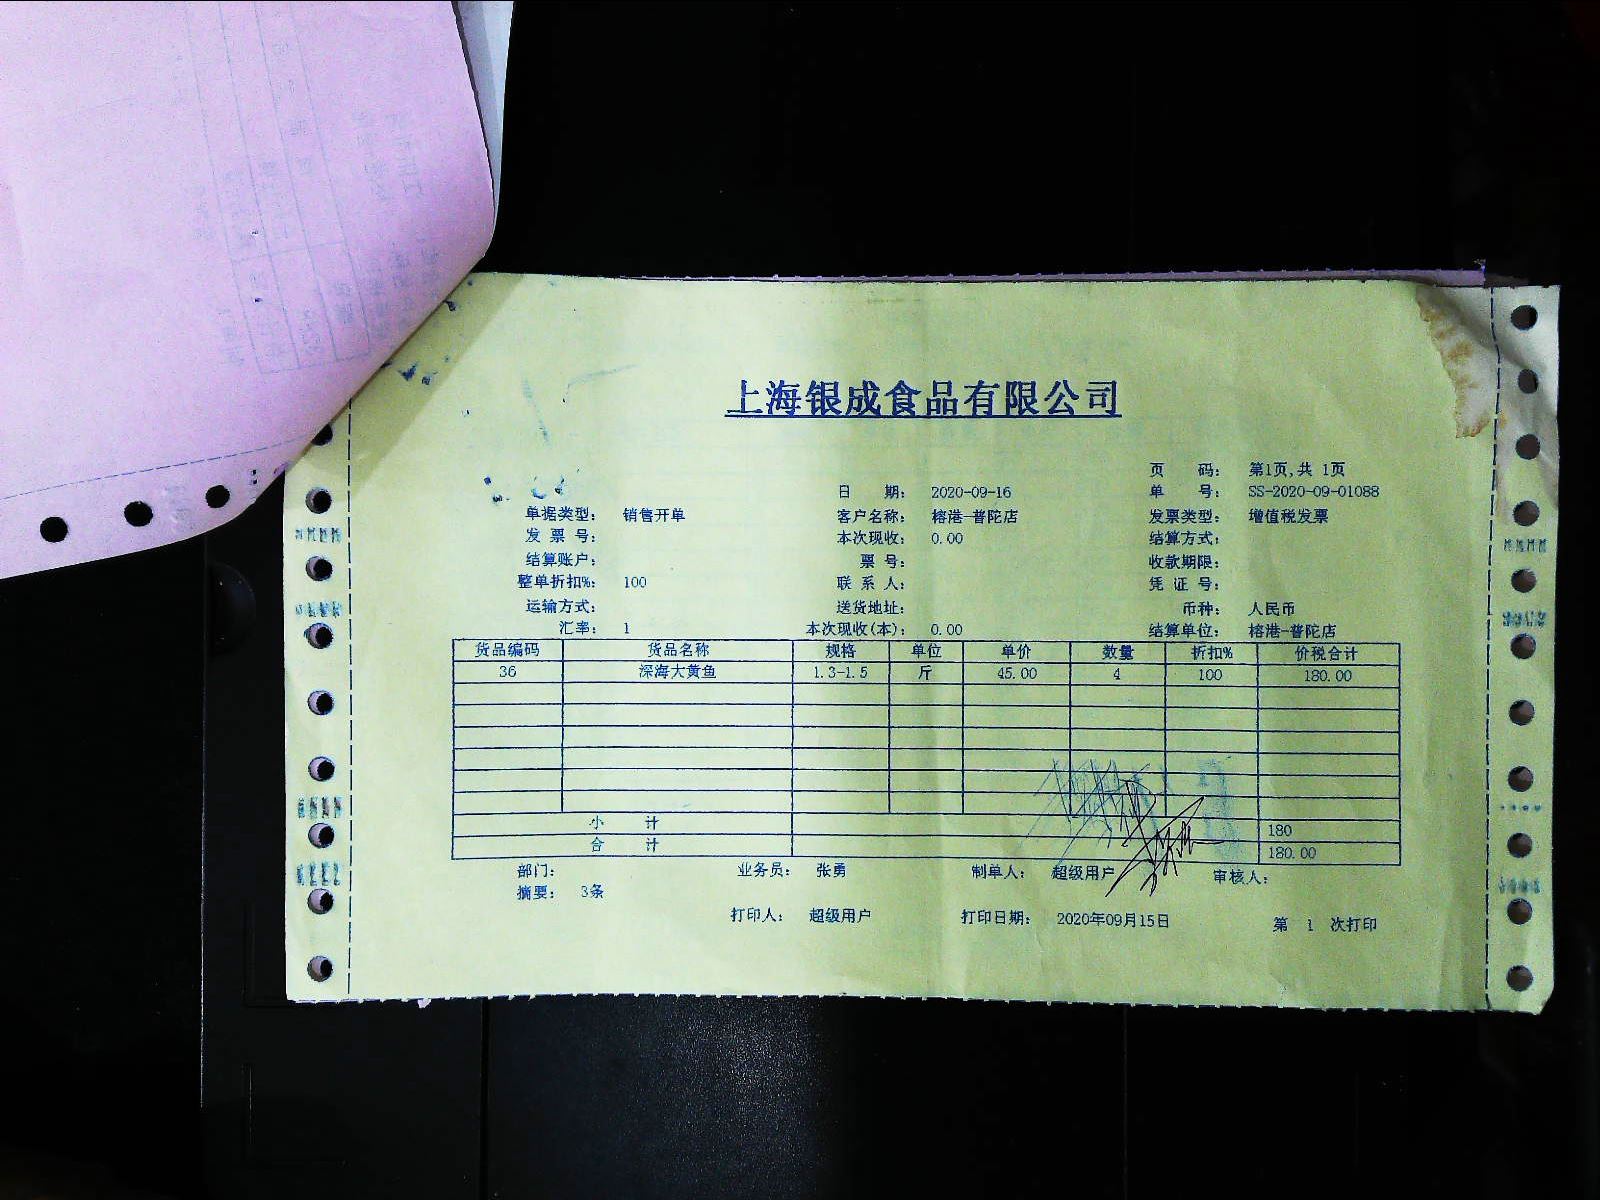 上海银成食品有限公司
页 码： 第1页,共 1页
日 期： 2020-09-16 单 号： SS-2020-09-01088
单据类型： 销售开单 客户名称： 榕港-普陀店 发票类型： 增值税发票
发 票 号： 本次现收： 0.00 结算方式：
结算账户： 票 号： 收款期限：
整单折扣%： 100 联 系 人： 凭 证 号：
运输方式： 送货地址： 币种： 人民币
汇率： 1 本次现收(本)： 0.00 结算单位： 榕港-普陀店
货品编码 货品名称 规格 单位 单价 数量 折扣% 价税合计
36 深海大黄鱼 1.3-1.5 斤 45.00 4 100 180.00
小 计 180
合 计 180.00
部门： 业务员： 张勇 制单人： 超级用户 审核人：
摘要： 3条
打印人： 超级用户 打印日期： 2020年09月15日 第 1 次打印